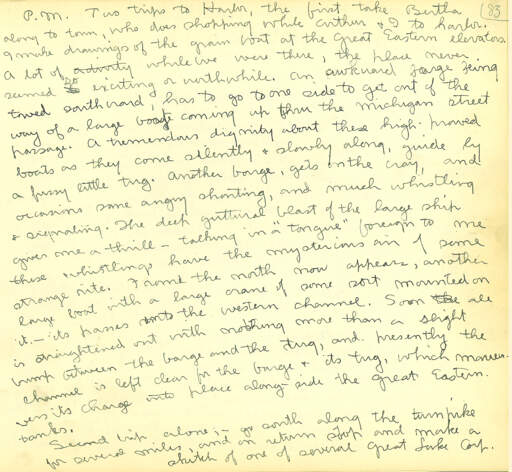 83
P.M. Two trips to Harbor, the first, take Bertha
along to town, who does shopping while Arthur & I to harbor.
I make drawings of the grain boat at the Great Eastern elevators.
A lot of activity while we were there, the place never
seemed so exciting or worthwhile. An awkward barge being
towed southward, has to go to one side to get out of the
way of a large boat coming up thru the Michigan Street
passage. A tremendous dignity about these high-prowed
boats as they come silently & slowly along, guide by
a fussy little tug. Another barge, gets in the way, and
occasions some angry shouting, and much whistling
& signaling. The deep guttural blast of the large ship
gives one a thrill - talking in a "tongue" foreign to me
these whistlings have the mysterious air of some
strange rite. From the north now appears, another
large boat with a large crane of some sort mounted on
it. - its passes into the western channel. Soon all
is straightened out with nothing more than a slight
bump between the barge and the tug, and presently the
channel is left clear for the barge & its tug, which maneu-
vers its charge into place along-side the great Eastern.
banks.
Second trip, alone; - go south along the turnpike
for several miles, and on return stop and make a
sketch of one of several Great Lake Corp.